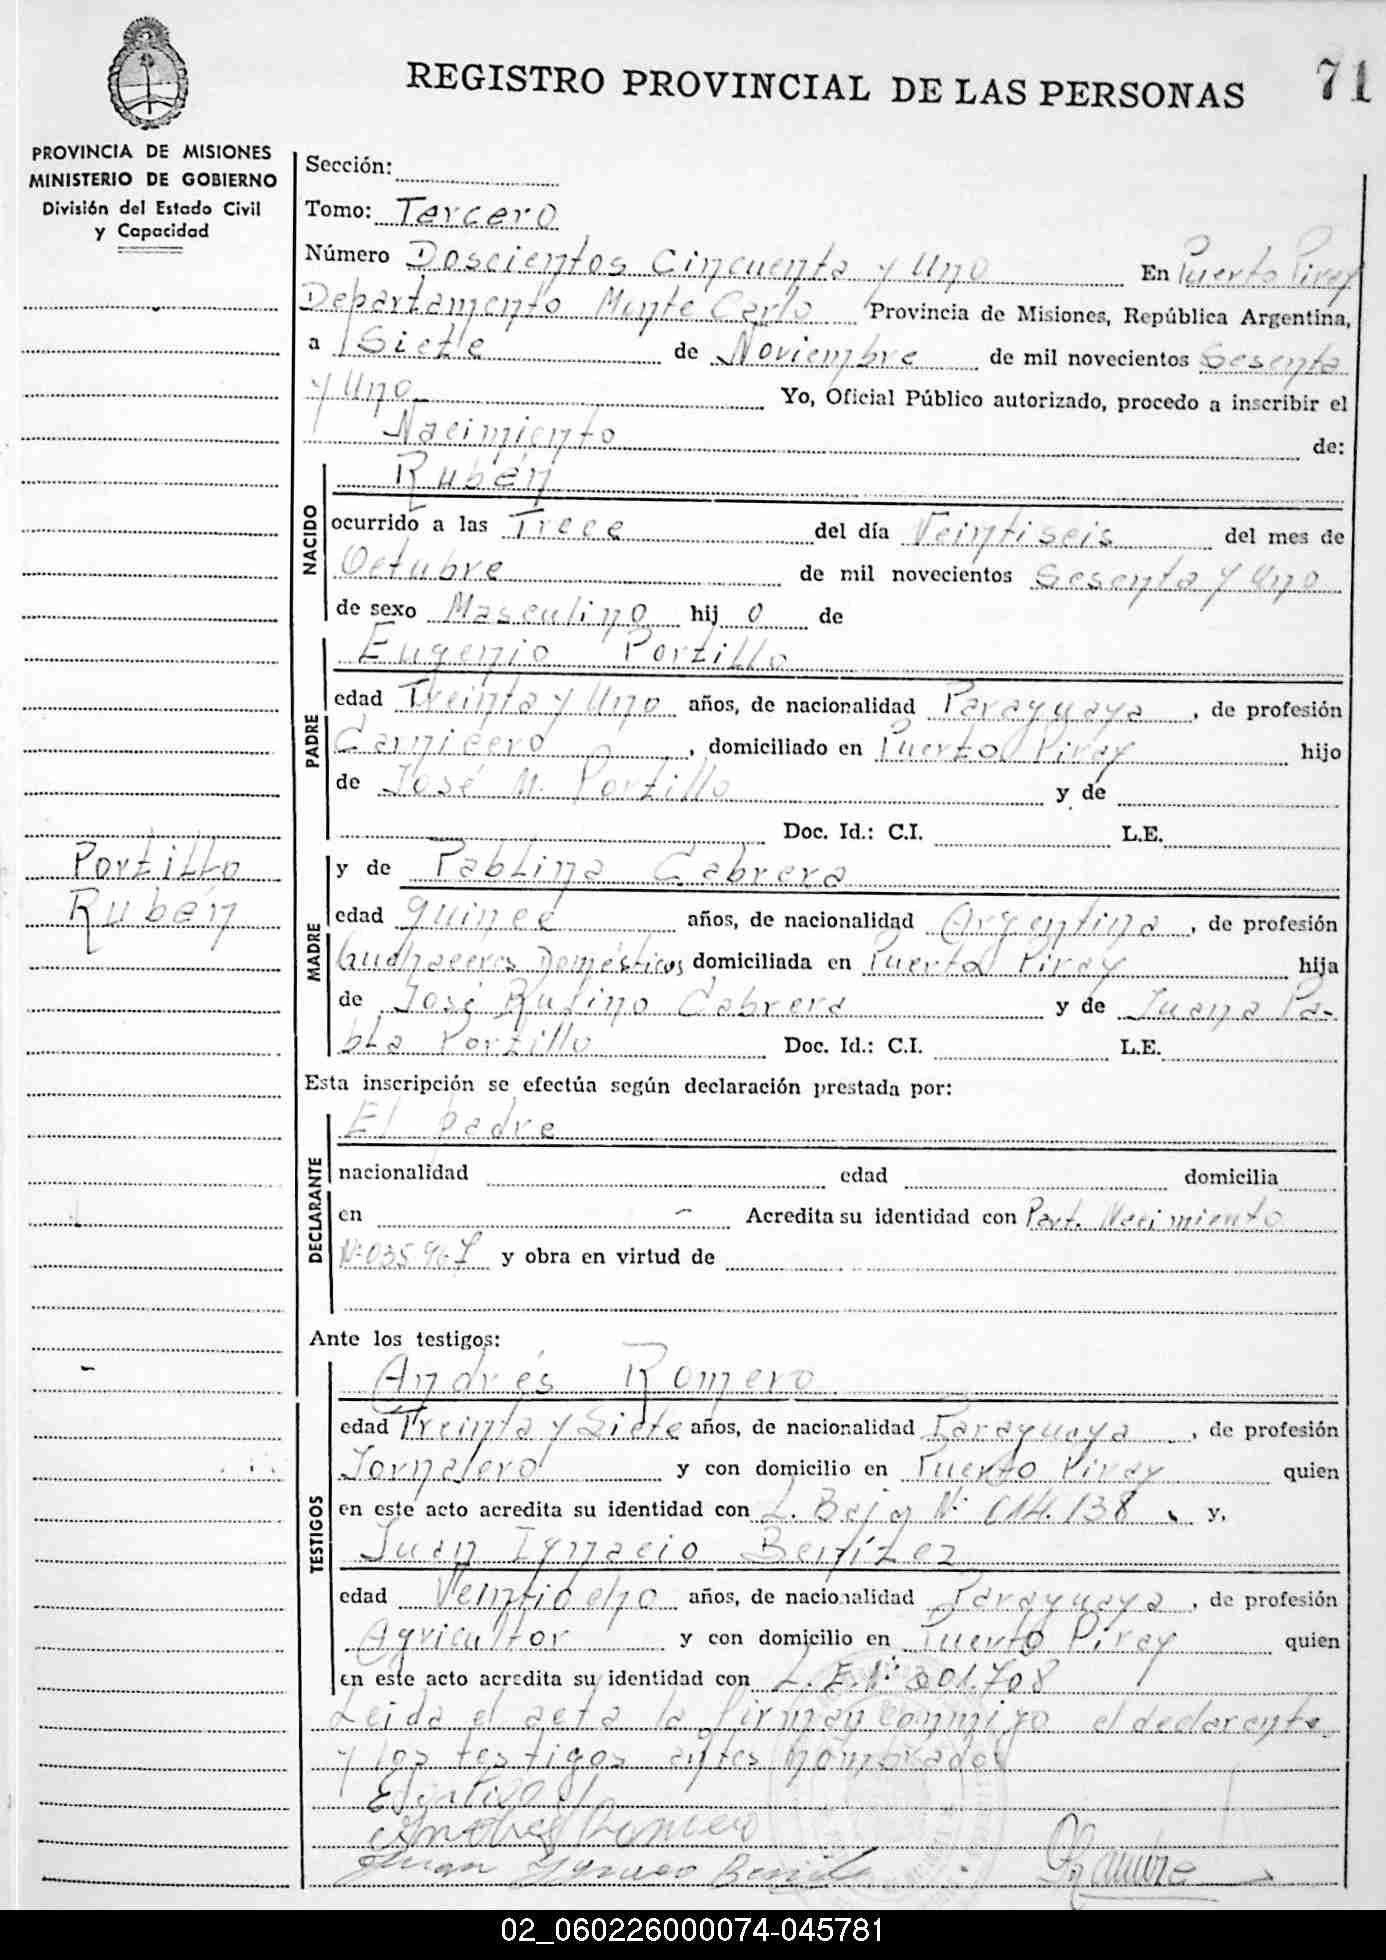 REGISTRO PROVINCIAL DE LAS PERSONAS
71
PROVINCIA DE MISIONES
MINISTERIO DE GOBIERNO
División del Estado Civil
y Capacidad
Sección:
Tomo: Tercero
Número Doscientos Cincuenta y Uno En Puerto Piray
Departamento Monte Carlo Provincia de Misiones, República Argentina,
a Siete de Noviembre de mil novecientos Sesenta
y Uno Yo, Oficial Público autorizado, procedo a inscribir el
Nacimiento de:
NACIDO
Rubén
ocurrido a las Trece del día Veintiseis del mes de
Octubre de mil novecientos Sesenta y Uno
de sexo Masculino hij o de
PADRE
Eugenio Portillo
edad Treinta y Uno años, de nacionalidad Paraguaya, de profesión
Carnicero, domiciliado en Puerto Piray hijo
de José M. Portillo y de
Doc. Id.: C.I. L.E.
Portillo
Rubén
MADRE
y de Pablina Cabrera
edad quince años, de nacionalidad Argentina, de profesión
Quehaceres Domésticos domiciliada en Puerto Piray hija
de José Rufino Cabrera y de Juana Pa-
bla Portillo Doc. Id.: C.I. L.E.
Esta inscripción se efectúa según declaración prestada por:
DECLARANTE
El padre
nacionalidad edad domicilia
en Acredita su identidad con Part. Nacimiento
Nº 035.967 y obra en virtud de
Ante los testigos:
TESTIGOS
Andrés Romero
edad Treinta y Siete años, de nacionalidad Paraguaya, de profesión
Jornalero y con domicilio en Puerto Piray quien
en este acto acredita su identidad con L. Baja Nº 014.138 y,
Juan Ignacio Benítez
edad Veintiocho años, de nacionalidad Paraguaya, de profesión
Agricultor y con domicilio en Puerto Piray quien
en este acto acredita su identidad con L. E. Nº 301.708
Leida el acta la firman conmigo el declarante
y los testigos antes nombrados
Andres Romero
Juan Ygnacio Benitez
02_060226000074-045781